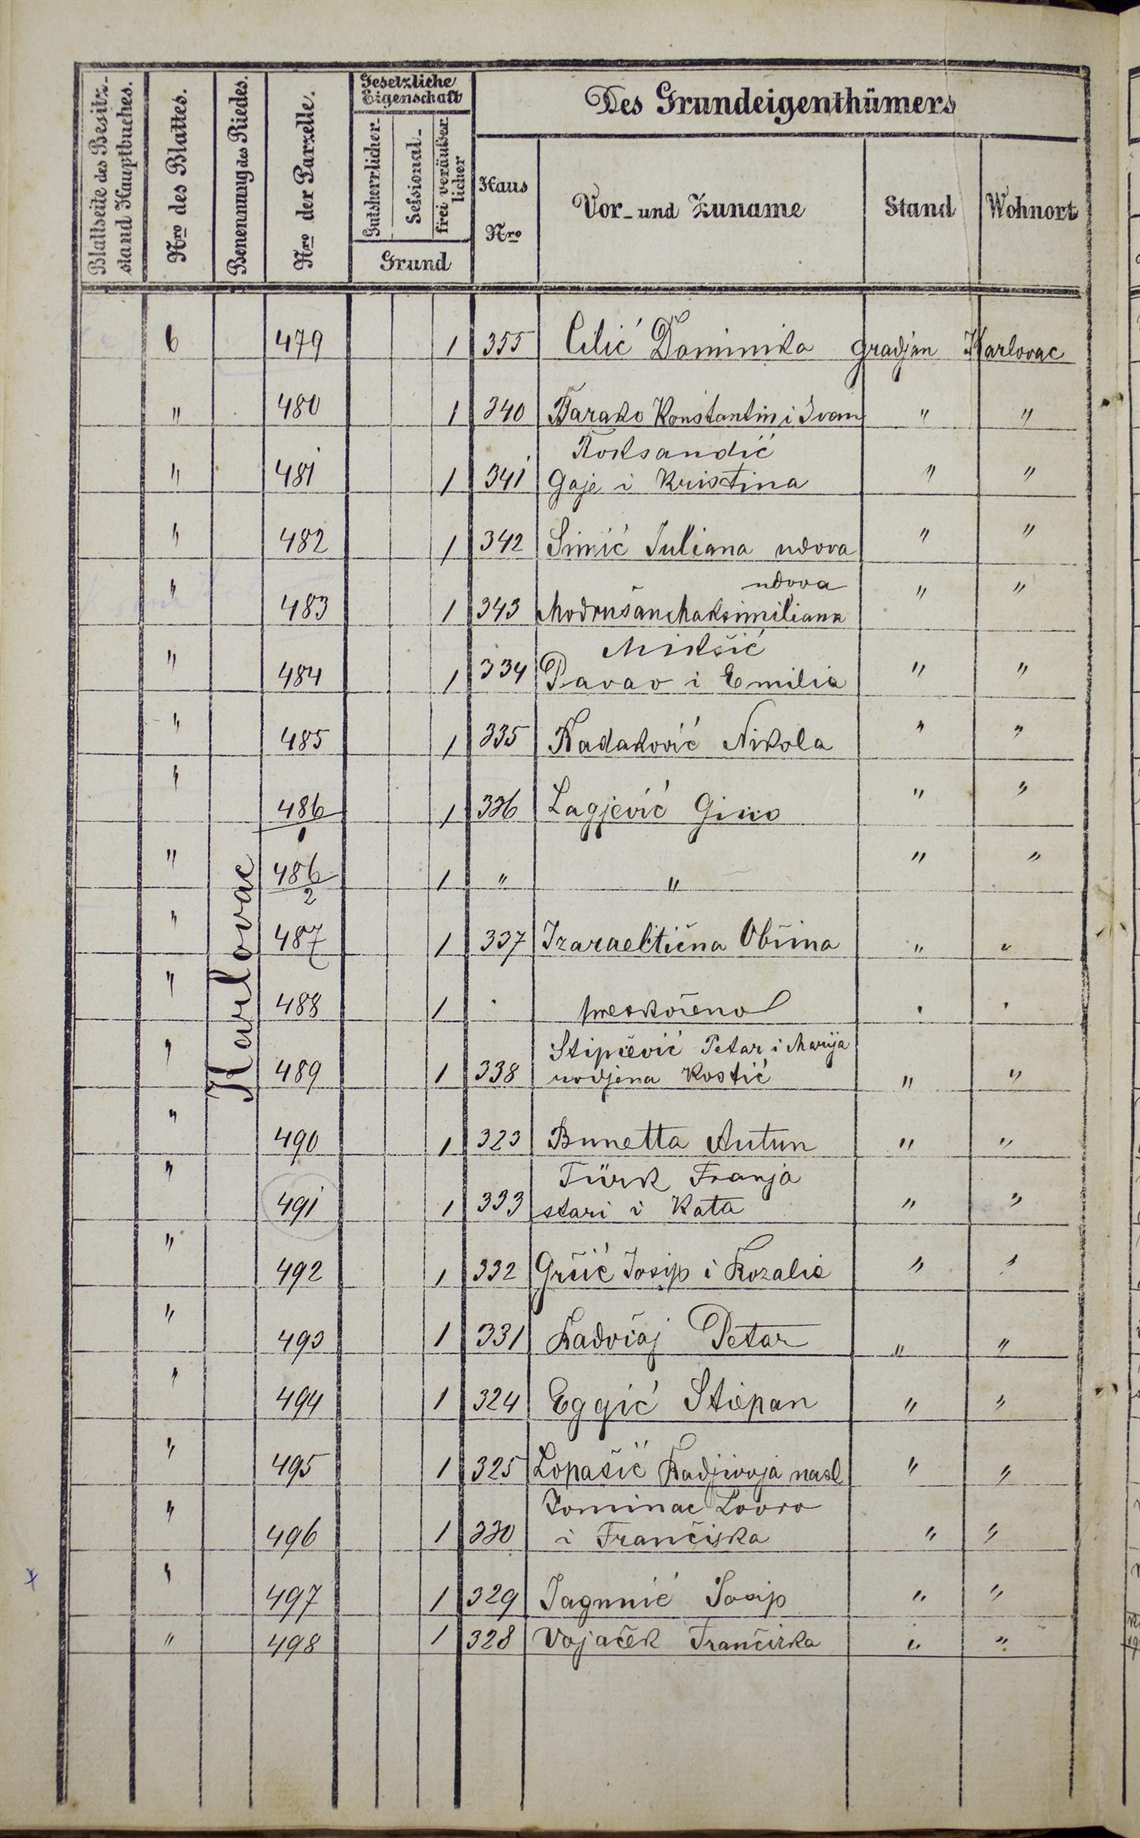 Blattseite des Besitz-
stand Hauptbuches.
Nro des Blattes.
Benennung des Riedes.
Nro der Parzelle.
Gesetzliche
Eigenschaft
Gutsherrlicher.
Sessional-
frei veräußer
licher
Grund
Des Grundeigenthümers
Haus
Nro
Vor- und Zuname
Stand
Wohnort
Karlovac
6 479 1 355 Cilić Dominika gradjan Karlovac
" 480 1 340 Barako Konstantin i Ivan " "
Roksandić
" 481 1 341 Gaje i Kristina " "
" 482 1 342 Simić Juliana udova " "
udova
" 483 1 343 Modrušan Maksimiliana " "
Mikšić
" 484 1 334 Pavao i Emilia " "
" 485 1 335 Radaković Nikola " "
" 486/1 1 336 Lagjević Gino " "
" 486/2 1 " " " "
" 487 1 337 Izraelitična Obćina " "
" 488 1 . preskočeno . .
Stipčević Petar i Marija
" 489 1 338 rodjena Kostić " "
" 490 1 323 Bunetta Antun " "
Türk Franja
" 491 1 333 stari i Kata " "
" 492 1 332 Gršić Josip i Rozalia " "
" 493 1 331 Radočaj Petar " "
" 494 1 324 Eggić Stiepan " "
" 495 1 325 Lopašić Radjivoja nasl " "
Lovro
" 496 1 330 i Frančiska " "
" 497 1 329 Jagunić Josip " "
" 498 1 328 Vojaček Frančiska " "